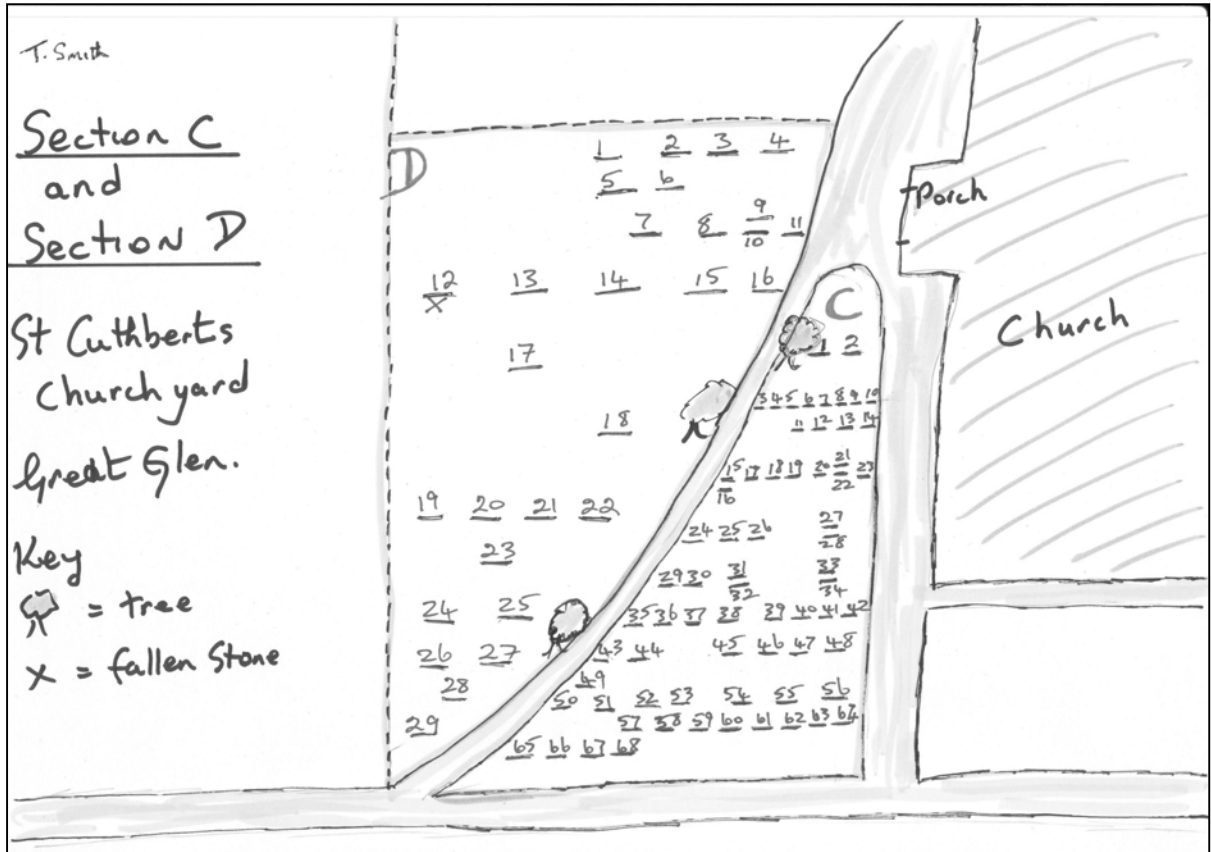 T. Smith
Section C
and
Section D
St Cuthberts
Church yard
Great Glen.
Key
= tree
x = fallen Stone
D
1 2 3 4
5 6
7 8 9 11
10
12 13 14 15 16
X
17
18
19 20 21 22
23
24 25
26 27
28
29
C
1 2
3 4 5 6 7 8 9 10
11 12 13 14
15 17 18 19 20 21 23
16 22
24 25 26 27
28
29 30 31 33
32 34
35 36 37 38 39 40 41 42
43 44 45 46 47 48
49
50 51 52 53 54 55 56
57 58 59 60 61 62 63 64
65 66 67 68
Porch
Church